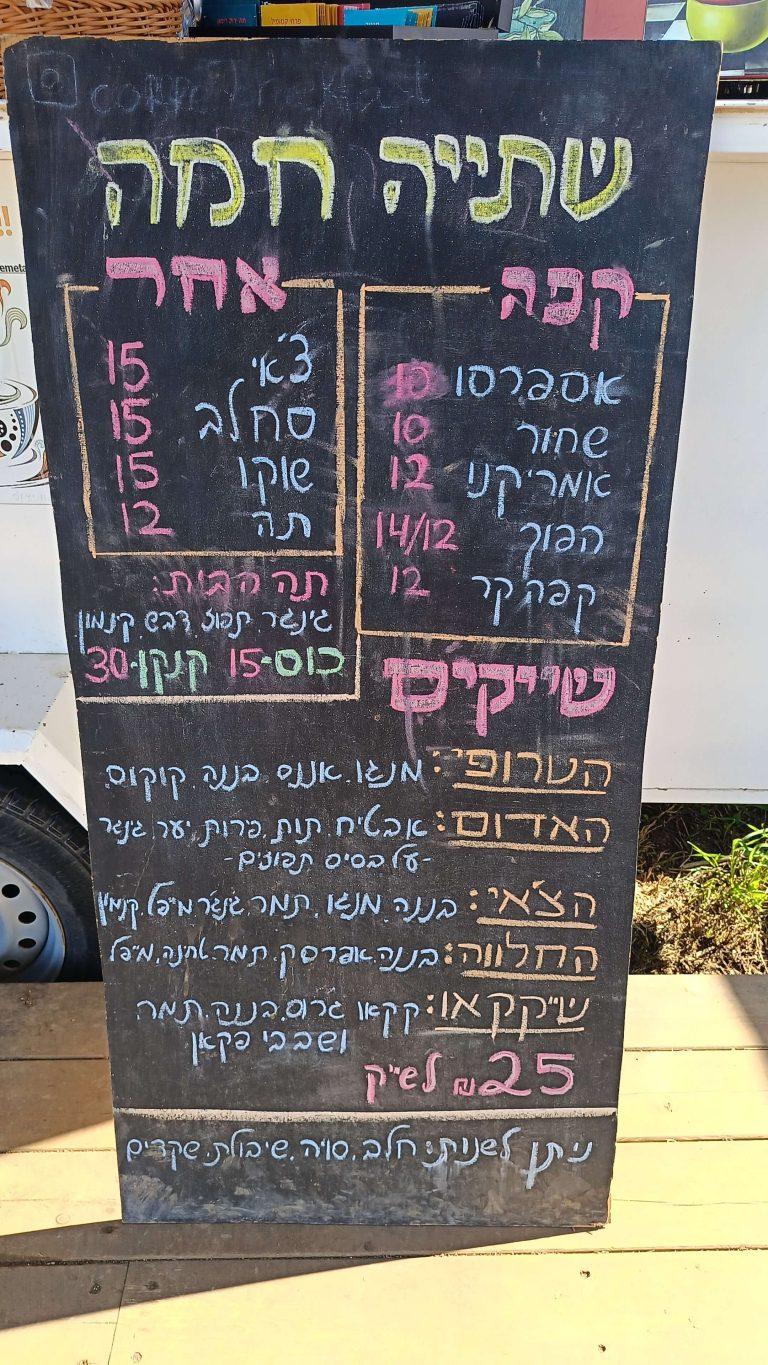 שתייה חמה
קפה
אספרסו 10
שחור 10
אמריקנו 12
הפוך 14/12
קפה קר 12
אחר
צ'אי 15
סחלב 15
שוקו 15
תה 12
תה הבית:
גינגר. תפוז. דבש. קינמון
כוס-15 קנקן-30
שייקים
הטרופי: מנגו. אננס. בננה. קוקוס.
האדום: אבטיח. תות. פרות יער. גינגר
-על בסיס תפוזים-
הצ'אי: בננה. מנגו. תמר. גינג'ר. מייפל. קינמון
החלווה: בננה. אפרסק. תמר. טחינה. מייפל
שייקקאו: קקאו גרוס. בננה. תמרה
ושבבי פקאן
25 ₪ לשייק
ניתן לשנות: חלב. סויה. שיבולת. שקדים